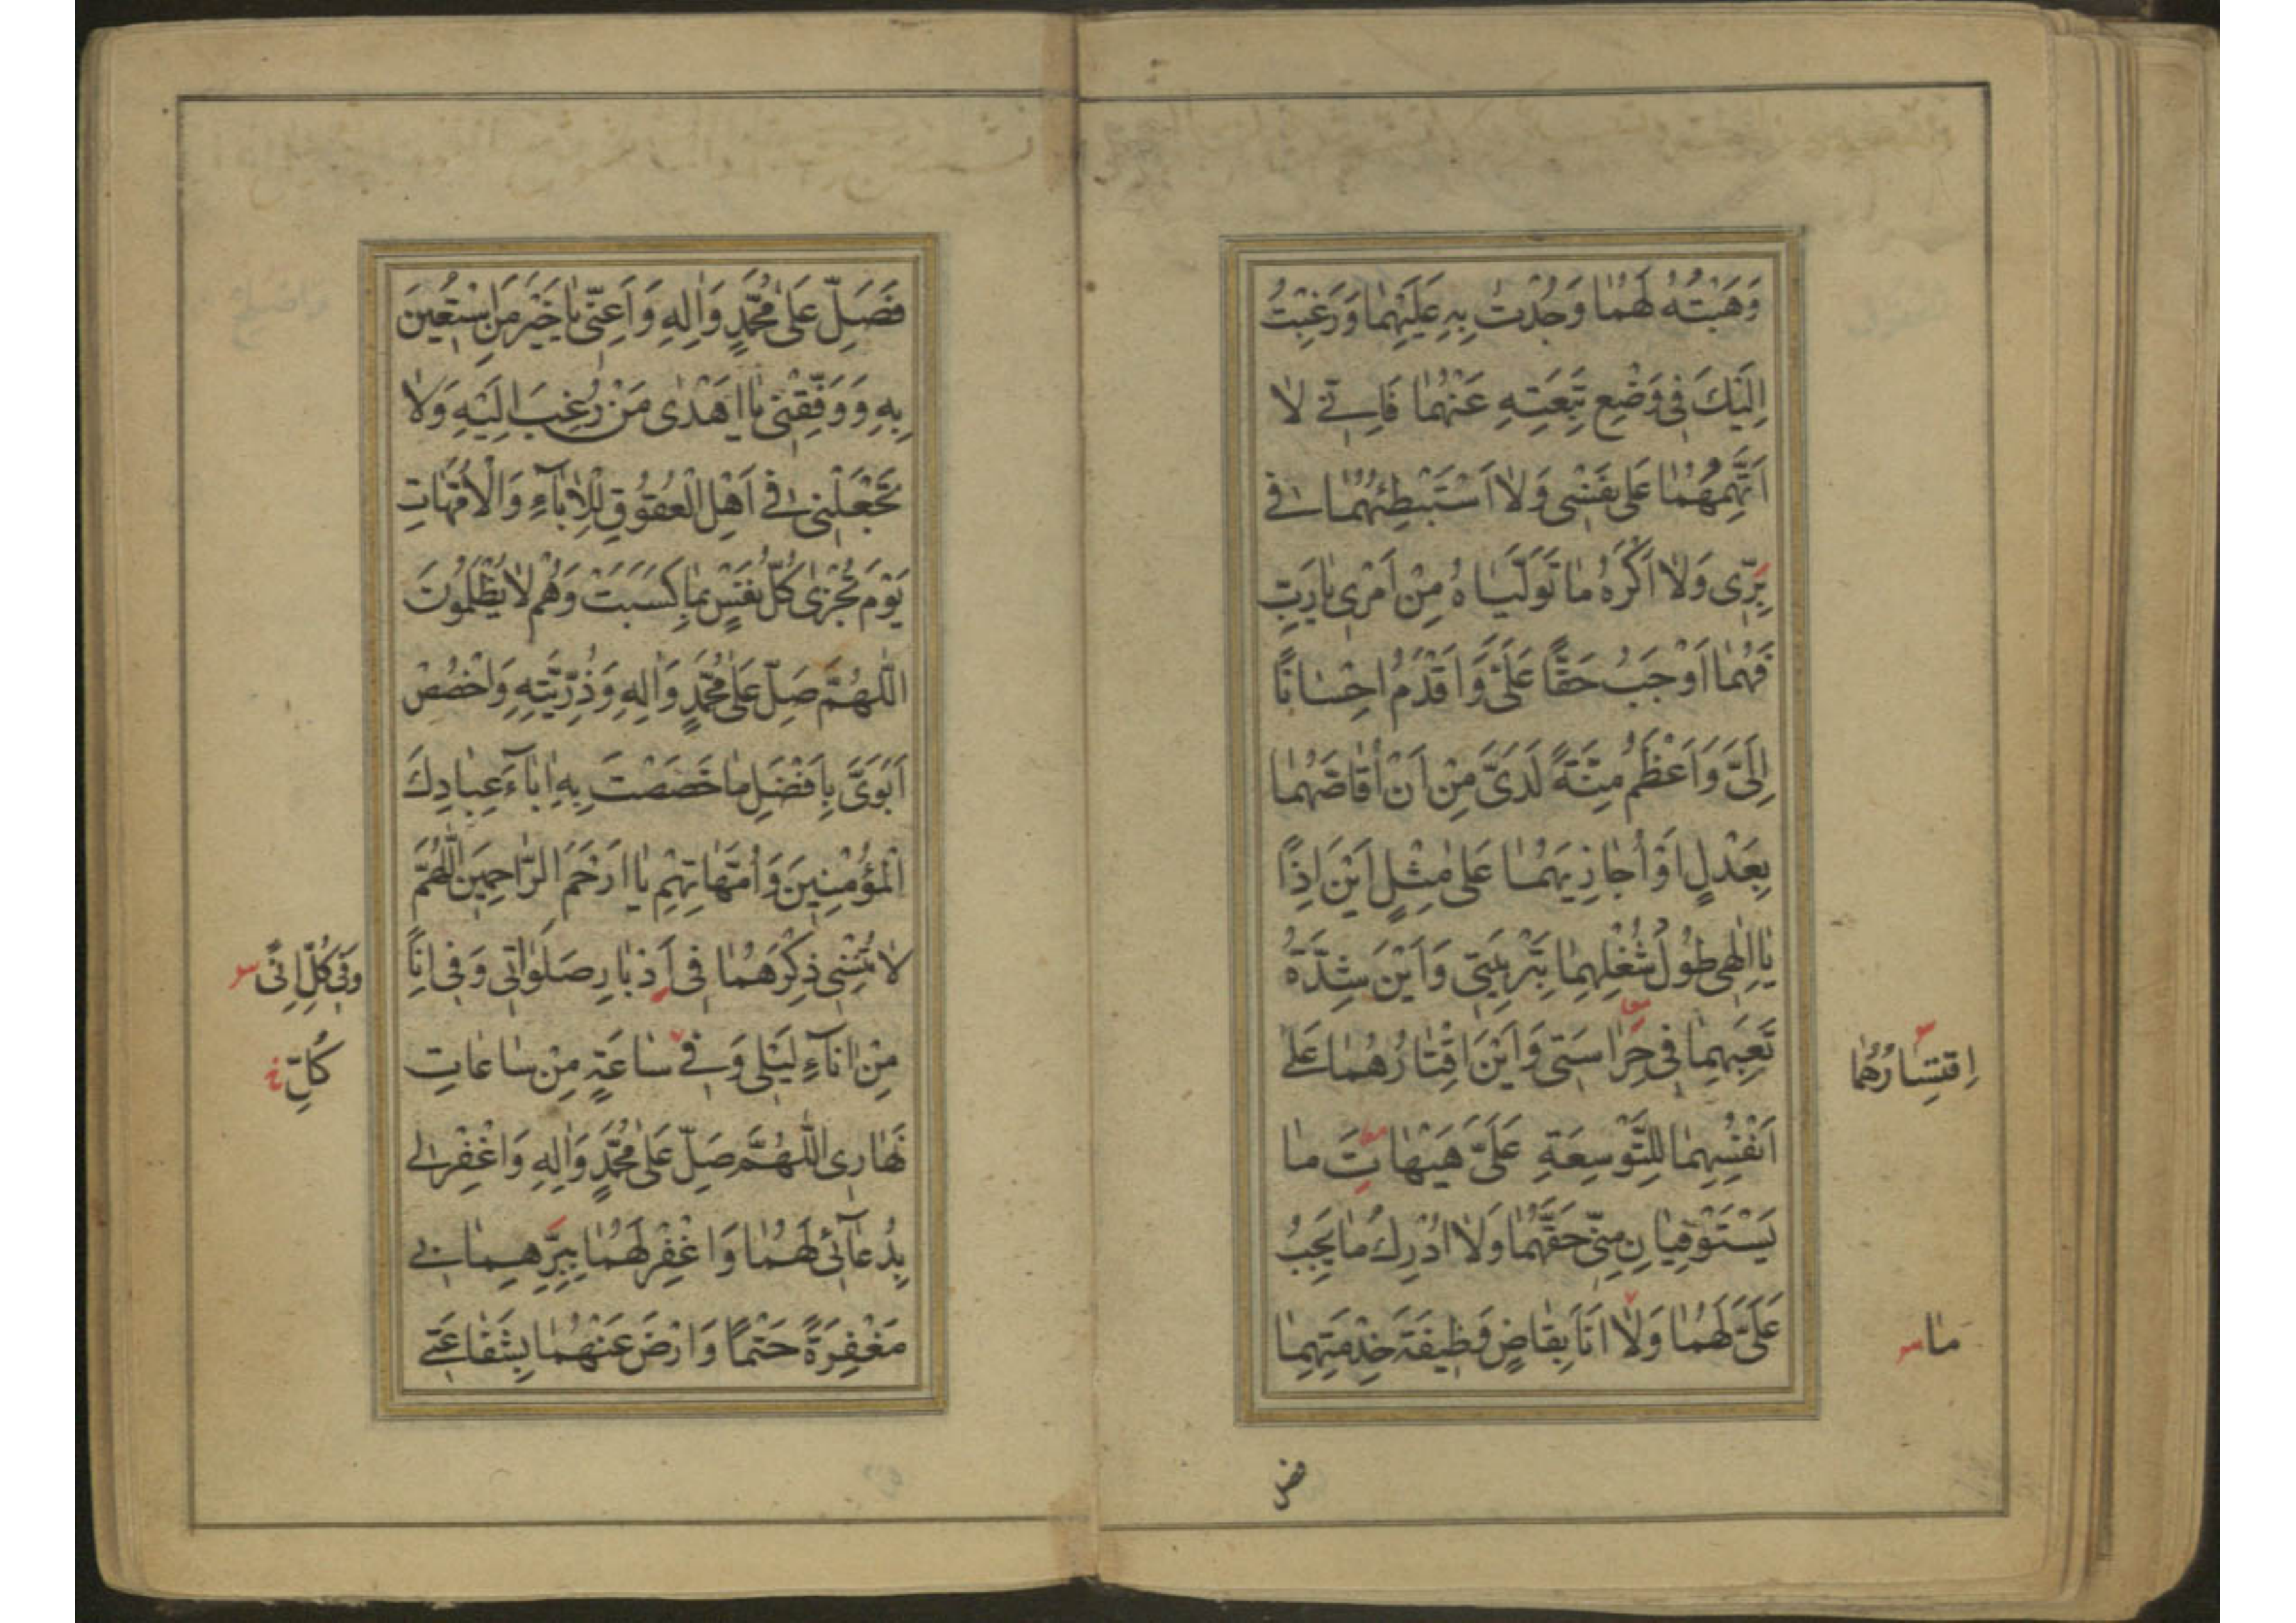 وَهَبْتُهُ لَهُمٰا وَجُدْتُ بِهِ عَلَيْهِمٰا وَرَغِبْتُ
اِلَيْكَ فِى وَضْعِ تَبِعَتِهِ عَنْهُمٰا فَاِنّى لٰا
اَتَّهِمُهُمٰا عَلىٰ نَفْسِى وَلٰا اَسْتَبْطِئُهُمٰا فى
بِرّى وَلٰا اَكْرَهُ مٰا تَوَلَّيٰاهُ مِنْ اَمْرِى يٰا رَبِّ
فَهُمٰا اَوْجَبُ حَقًّا عَلَىَّ وَاَقْدَمُ اِحْسٰانًا
اِلَىَّ وَاَعْظَمُ مِنَّةً لَدَىَّ مِنْ اَنْ اُقٰاصَّهُمٰا
بِعَدْلٍ اَوْ اُجٰازِيَهُمٰا عَلىٰ مِثْلٍ اَيْنَ اِذًا
يٰا اِلٰهِى طُولُ شُغْلِهِمٰا بِتَرْبِيَتِى وَاَيْنَ شِدَّةُ
تَعَبِهِمٰا فِى حِرٰاسَتِى وَاَيْنَ اِقْتٰارُهُمٰا عَلىٰ
اِقتِسٰارُهُمٰا
اَنْفُسِهِمٰا لِلتَّوْسِعَةِ عَلَىَّ هَيْهٰاتَ مٰا
يَسْتَوْفِيٰانِ مِنّى حَقَّهُمٰا وَلٰا اُدْرِكُ مٰا يَجِبُ
عَلَىَّ لَهُمٰا وَلٰا اَنَا بِقٰاضٍ وَظِيفَةَ خِدْمَتِهِمٰا
مٰا
فصل
فَصَلِّ عَلىٰ مُحَمَّدٍ وَاٰلِهِ وَاَعِنّى يٰا خَيْرَ مَنِ اسْتُعِينَ
بِهِ وَوَفِّقْنِى يٰا اَهْدٰى مَنْ رُغِبَ اِلَيْهِ وَلٰا
تَجْعَلْنِى فى اَهْلِ الْعُقُوقِ لِلْاٰبٰآءِ وَالْاُمَّهٰاتِ
يَوْمَ تُجْزٰى كُلُّ نَفْسٍ بِمٰا كَسَبَتْ وَهُمْ لٰا يُظْلَمُونَ
اَللّٰهُمَّ صَلِّ عَلىٰ مُحَمَّدٍ وَاٰلِهِ وَذُرِّيَّتِهِ وَاخْصُصْ
اَبَوَىَّ بِاَفْضَلِ مٰا خَصَصْتَ بِهِ اٰبٰآءَ عِبٰادِكَ
الْمُؤْمِنِينَ وَاُمَّهٰاتِهِمْ يٰا اَرْحَمَ الرّٰاحِمِينَ اَللّٰهُمَّ
لٰا تُنْسِنِى ذِكْرَهُمٰا فِى اَدْبٰارِ صَلَوٰاتِى وَفِى اِنًا
وَفِى كُلِّ اِنًى
مِنْ اٰنٰآءِ لَيْلِى وَفِى سٰاعَةٍ مِنْ سٰاعٰاتِ
كُلِّ خ
نَهٰارِى اَللّٰهُمَّ صَلِّ عَلىٰ مُحَمَّدٍ وَاٰلِهِ وَاغْفِرْ لى
بِدُعٰآئى لَهُمٰا وَاغْفِرْ لَهُمٰا بِبِرِّهِمٰا بى
مَغْفِرَةً حَتْمًا وَارْضَ عَنْهُمٰا بِشَفٰاعَتى